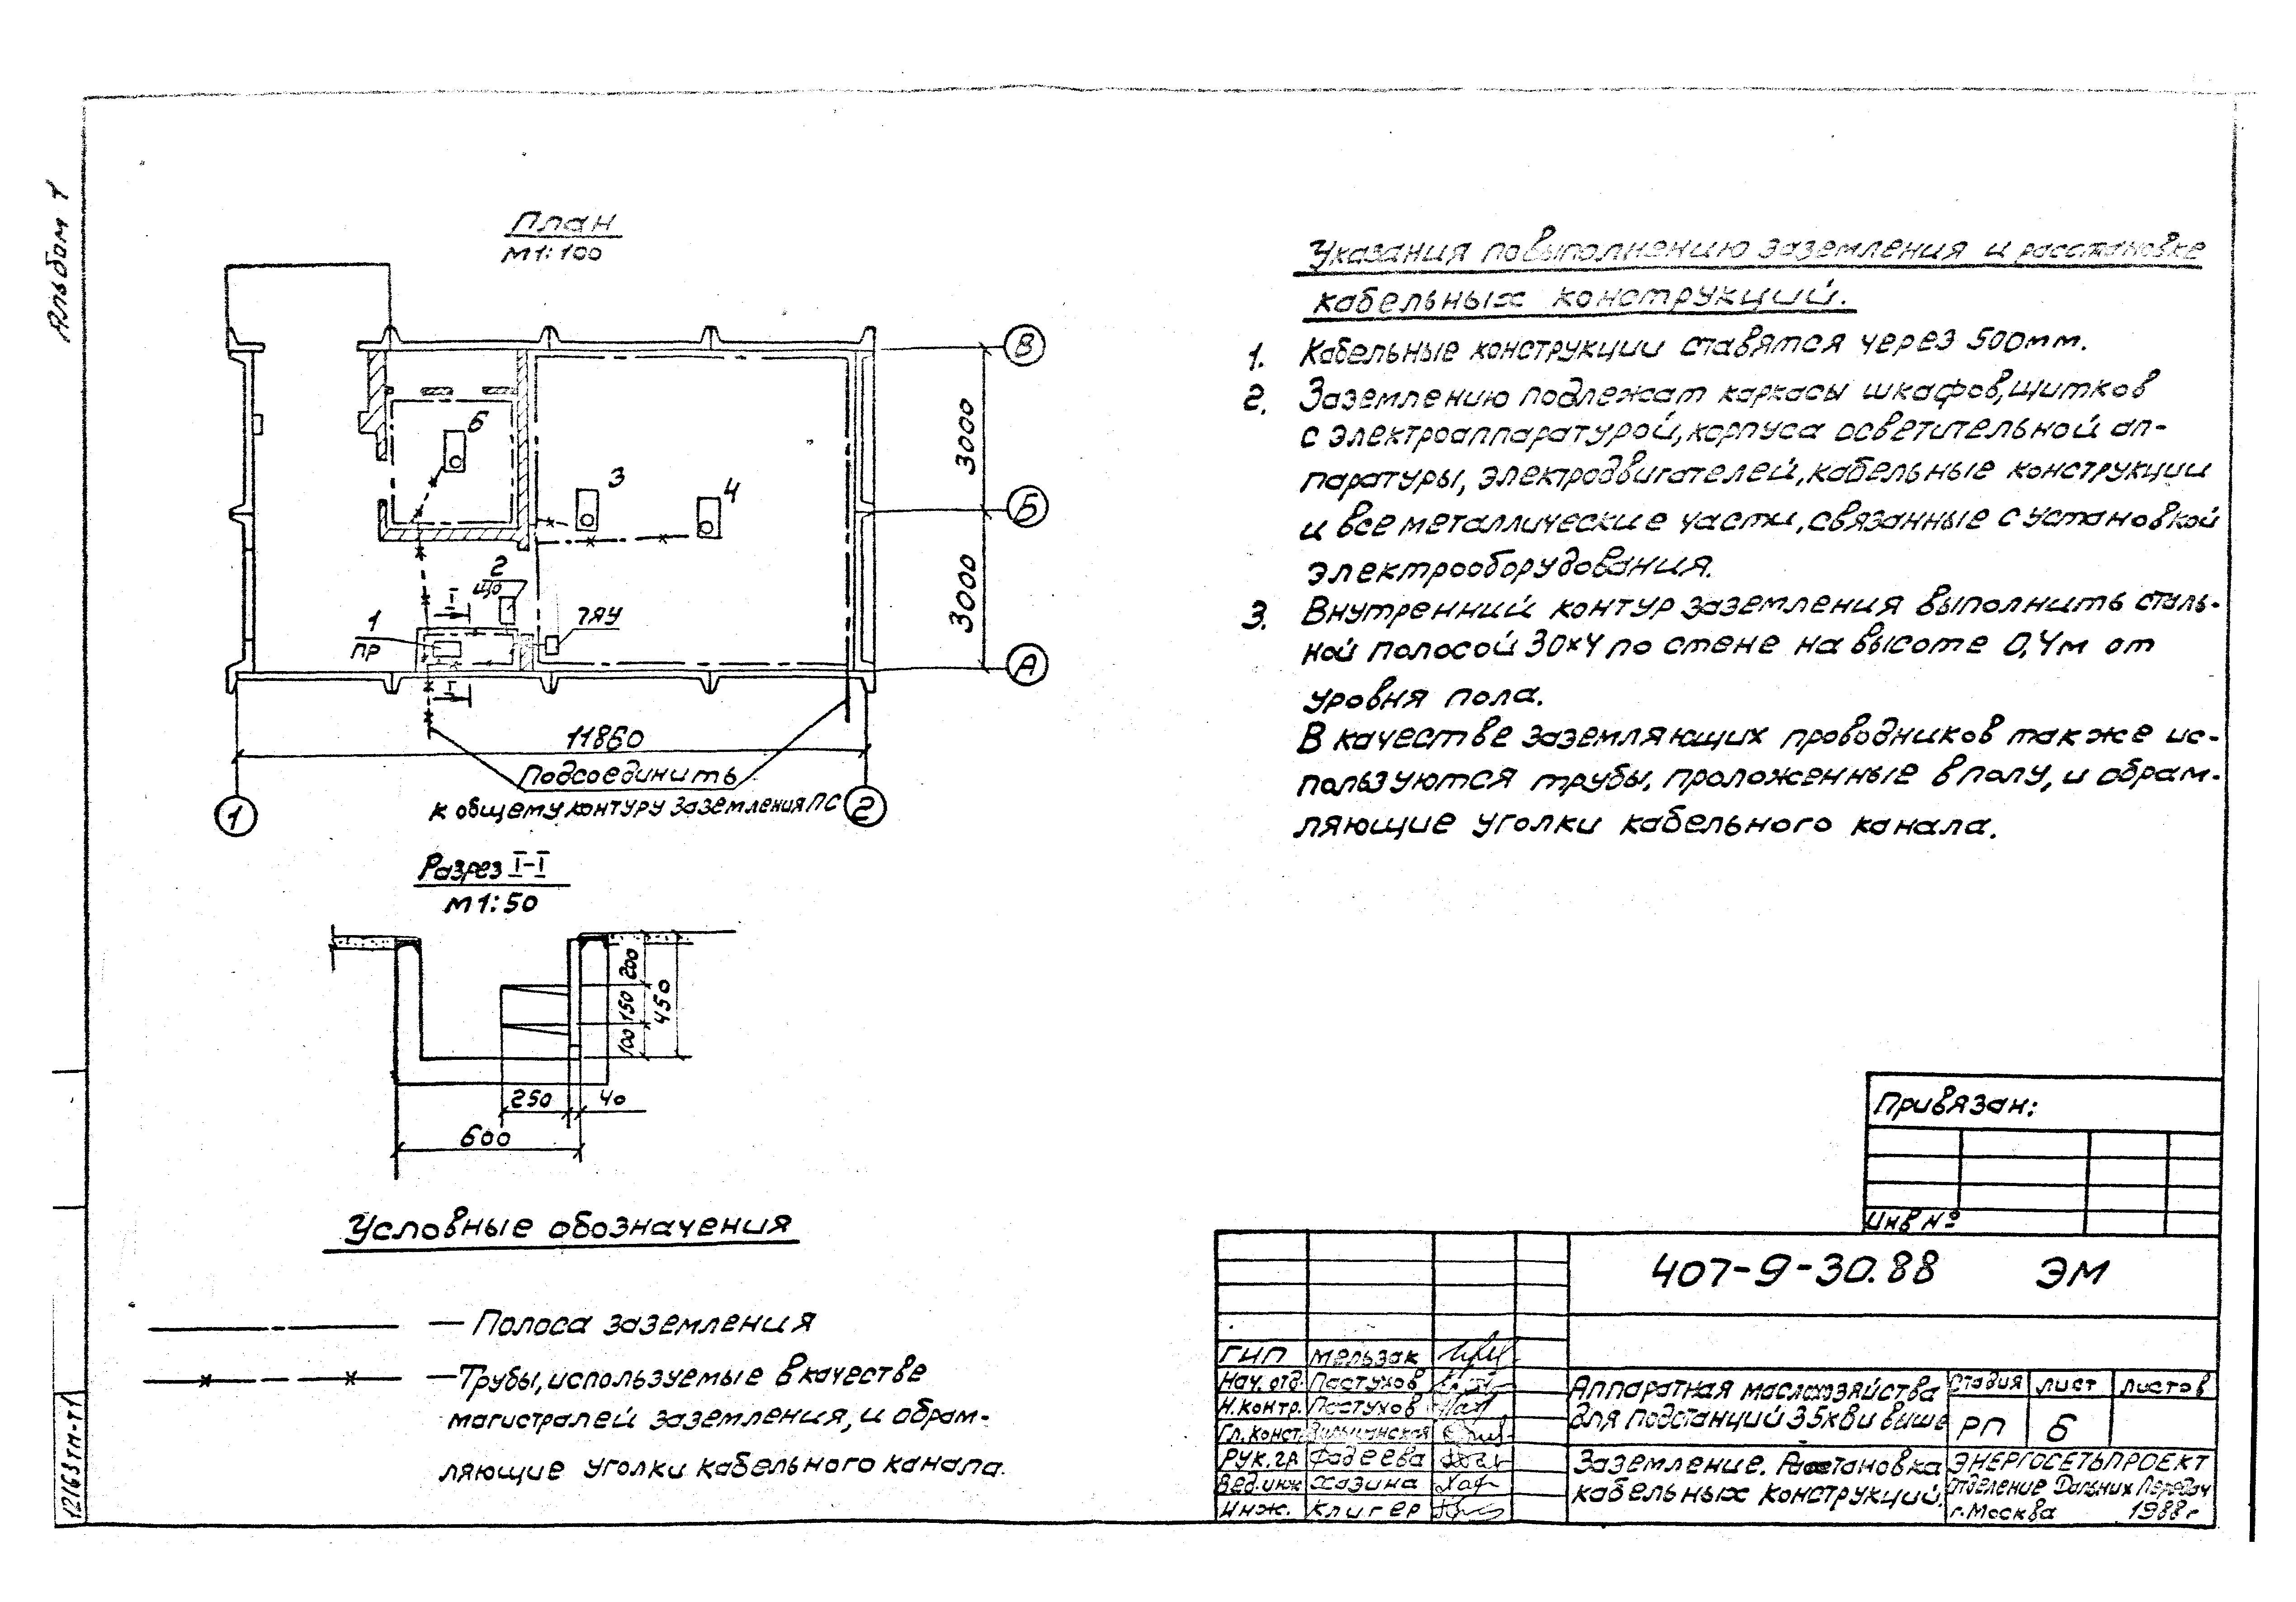 Альбом 1
План
М1:100
В
Б
А
3000
3000
6
3
4
2
ЩО
I
1
ПР
7ЯУ
I
11860
Подсоединить
к общему контуру заземления ПС
1
2
Разрез I-I
М1:50
200
150
100
450
250
40
600
Условные обозначения
— Полоса заземления
— Трубы, используемые в качестве
магистралей заземления, и обрам-
ляющие уголки кабельного канала.
Указания по выполнению заземления и расстановке
кабельных конструкций.
1. Кабельные конструкции ставятся через 500мм.
2. Заземлению подлежат каркасы шкафов, щитков
с электроаппаратурой, корпуса осветительной ап-
паратуры, электродвигателей, кабельные конструкции
и все металлические части, связанные с установкой
электрооборудования.
3. Внутренний контур заземления выполнить сталь-
ной полосой 30×4 по стене на высоте 0,4м от
уровня пола.
В качестве заземляющих проводников также ис-
пользуются трубы, проложенные в полу, и обрам-
ляющие уголки кабельного канала.
Привязан:
Инв №
407-9-30.88 ЭМ
ГИП Мельзак
Нач. отд. Пастухов
Н.контр. Пастухов
Гл. конст.
Рук. гр Фадеева
Вед. инж Хазина
Инж. Клигер
Аппаратная маслохозяйства
для подстанций 35кВ и выше
Стадия Лист Листов
РП 6
Заземление. Расстановка
кабельных конструкций.
ЭНЕРГОСЕТЬПРОЕКТ
Отделение Дальних Передач
г. Москва 1988г
12163тм-т1